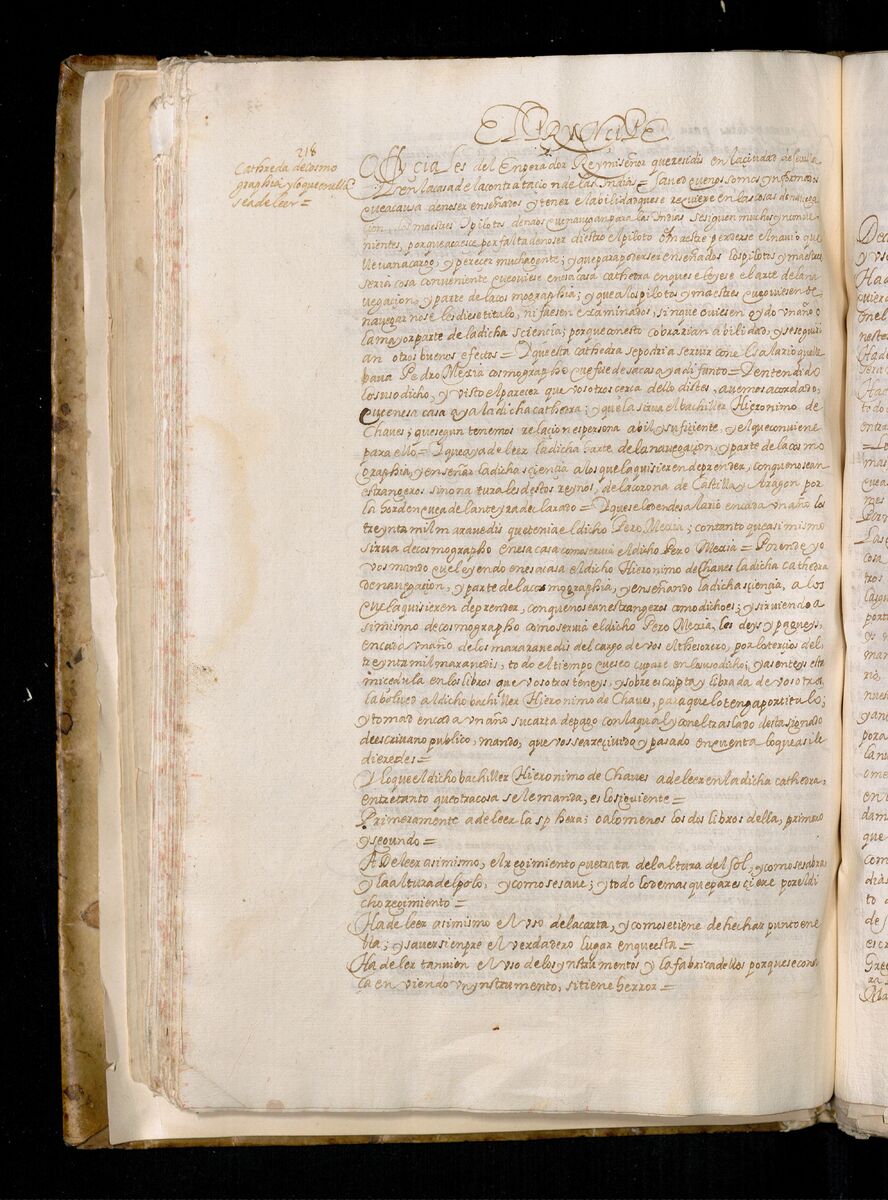 EL PRINCIPE
218
Cathreda de cosmo
graphia y lo que en ella
se a de leer =
Officiales del Enperador Rey mi señor que residis en la ciudad de Sevilla
en la casa de la contratacion de las Indias = Saved que nos somos ynformados
que a causa de no ser enseñados y tener el abilidad que se requiere en las cosas de navega
cion, los maestres y pilotos de naos que navegan para las Indias se siguen muchos ynconve
nientes, porque acaesce por falta de no ser diestro el piloto o maestre perderse el navio que
llevan a cargo y perecer mucha gente; y que para poder ser enseñados los pilotos y maestres
seria cosa conveniente que oviese en esa casa cathedra en que se leyese el arte de la na
vegaçion, y parte de la cosmographia; y que a los pilotos y maestres que oviesen de
navegar no se les diese titulo, ni fuesen examinados, sin que oviesen oydo un año o
la mayor parte de la dicha sciencia; porque con esto cobrarian abilidad, y se seguiri
an otros buenos efectos = Y que esta cathedra se podria servir con el salario que lle
vava Pedro Mexia cosmographo que fue desa casa ya difunto = Y entendido
lo suso dicho, y visto el parecer que vosotros cerca dello distes, avemos acordado,
que en esa casa aya la dicha cathedra; y que la sirva el bachiller Hieronimo de
Chaves; que segun tenemos relaçion es persona abil y sufiçiente, y el que conviene
para ello = Y que aya de leer la dicha parte de la navegaçion, y parte de la cosmo
graphia, y enseñar la dicha sçiençia a los que la quisieren deprender, con que no sean
estrangeros sino naturales destos reynos, de la corona de Castilla y Aragon por
la borden que a delante yra declarado = Y que se le den de salario en cada un año los
treynta mil maravedis que tenia el dicho Pero Mexia; con tanto que asimismo
sirva de cosmographo en esa casa como servia el dicho Pero Mexia = Por ende yo
vos mando que leyendo en esa casa el dicho Hieronimo de Chaves la dicha cathedra
de navegaçion, y parte de la cosmographia, y enseñando la dicha sçiençia, a los
que la quisieren deprender, con que no sean estrangeros como dicho es; y sirviendo a
simismo de cosmographo como servia el dicho Pero Mexia, les deys y pagueys,
en cada un año de los maravedis del cargo de vos el thesorero, por los terçios del,
treynta mil maravedis, todo el tiempo que se ocupare en lo suso dicho; y asenteys esta
mi cedula en los libros que vosotros teneys, y sobre escripta y librada de vosotros,
la bolved al dicho bachiller Hieronimo de Chaves, para que lo tenga por titulo;
y tomad en cada un año su carta de pago con la qual y con el traslado desta signado
de escrivano publico, mando, que vos sea reçivido y pasado en quenta lo que asi le
dieredes =
Y lo que el dicho bachiller Hieronimo de Chaves a de leer en la dicha cathedra,
entre tanto que otra cosa se le manda, es lo siguiente =
Primeramente a de leer la sphera; o a lo menos los dos libros della, primero
y segundo =
A de leer asimismo, el regimiento que trata de la altura del Sol, y como se sabra
y la altura del polo, y como se save; y todo lo demas que pareçiere por el di
cho regimiento =
Ha de leer asimismo el uso de la carta, y como se tiene de hechar punto en e
lla; y saver siempre el verdadero lugar en que esta =
Ha de leer tanvien el uso de los ynstrumentos y la fabrica dellos porque se conos
ca en viendo un ynstrumento, si tiene herror =